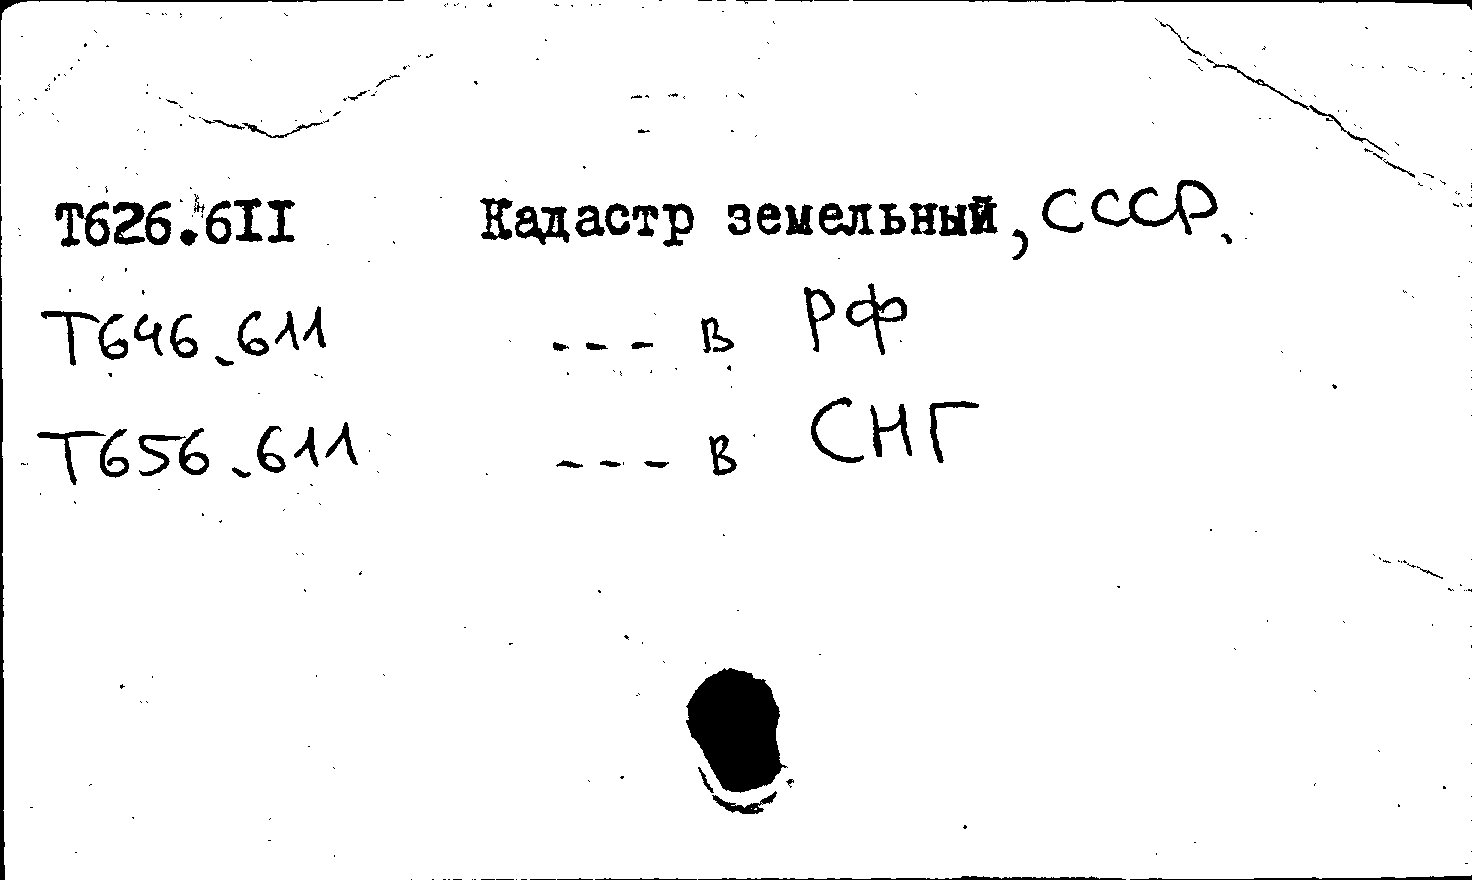 Т626.6II Кадастр земельный, СССР.
Т646.611 --- в РФ
Т656.611 --- в СНГ